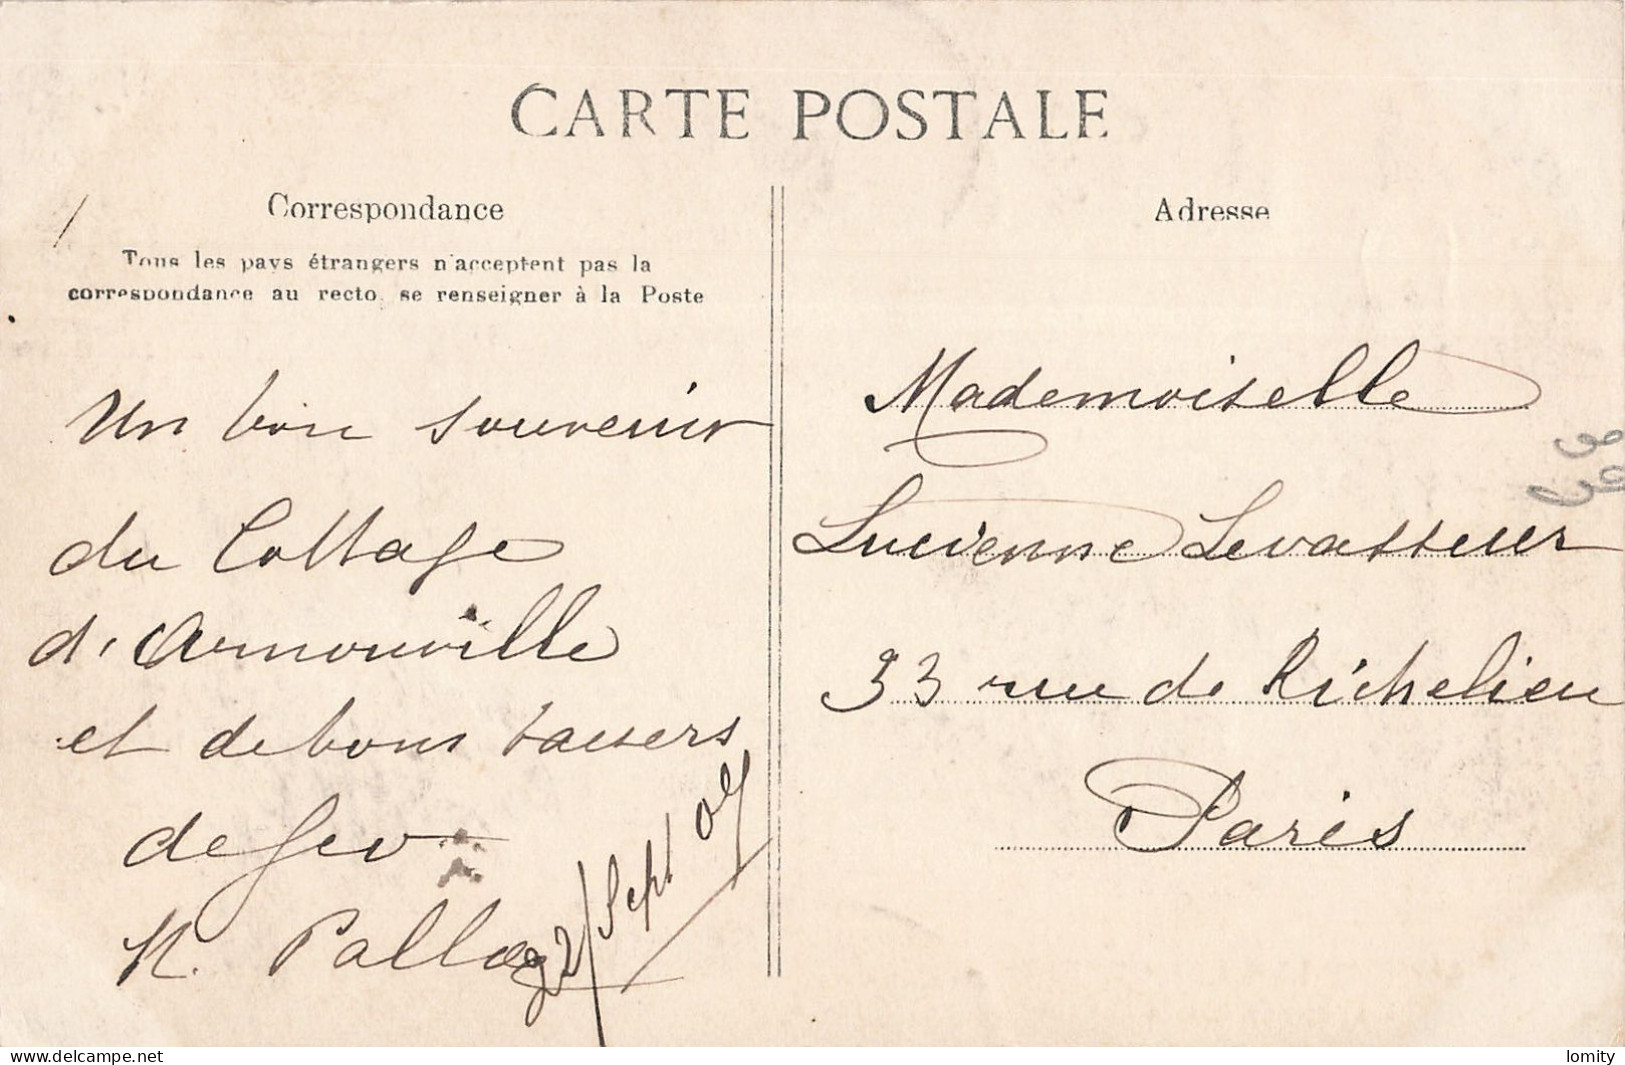 CARTE POSTALE
Correspondance
Tous les pays étrangers n'acceptent pas la
correspondance au recto, se renseigner à la Poste
Un bon souvenir
du Cottage
d'Arnouville
et de bons baisers
de
22/Sept 05
Adresse
Mademoiselle
Lucienne Levasseur
33 rue de Richelieu
Paris
delcampe.net
lomity